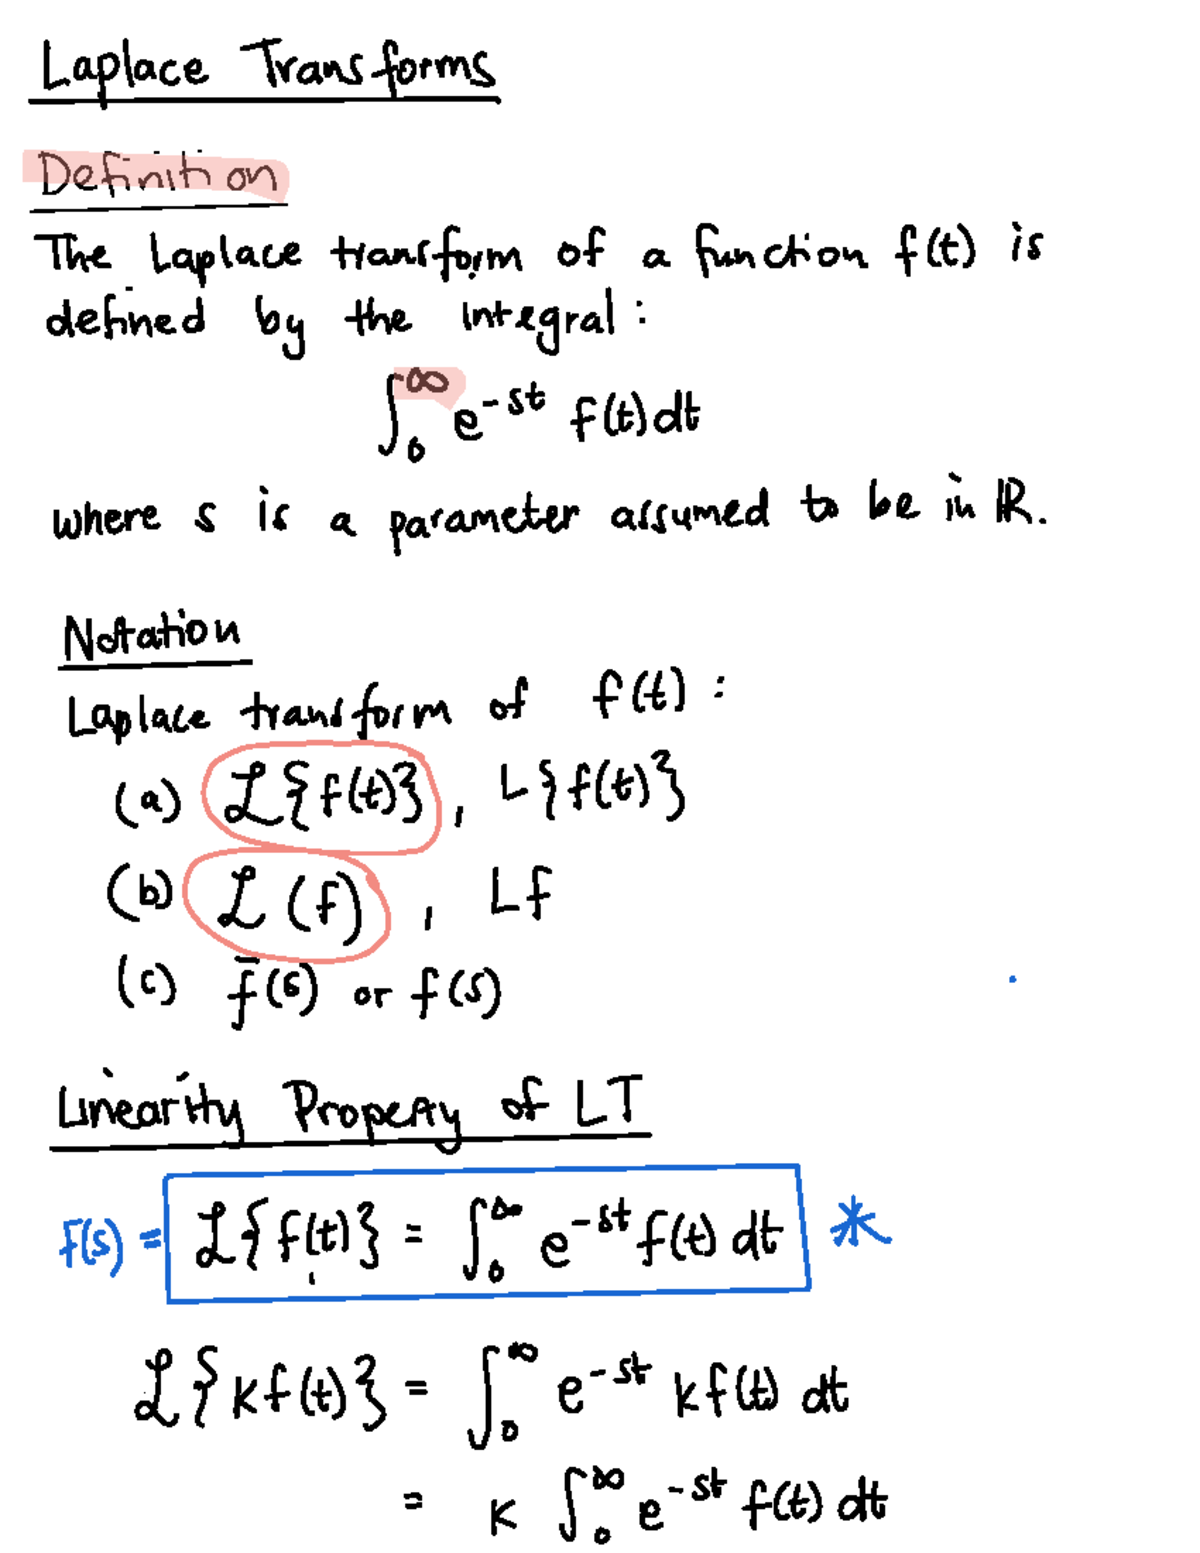 Laplace Transforms
Definition
The Laplace transform of a function f(t) is
defined by the integral:
∫₀^∞ e^{-st} f(t) dt
where s is a parameter assumed to be in ℝ.
Notation
Laplace transform of f(t):
(a) ℒ{f(t)}, L{f(t)}
(b) ℒ(f), Lf
(c) f̄(s) or f(s)
Linearity Property of LT
F(s) = ℒ{f(t)} = ∫₀^∞ e^{-st} f(t) dt *
ℒ{kf(t)} = ∫₀^∞ e^{-st} kf(t) dt
= k ∫₀^∞ e^{-st} f(t) dt